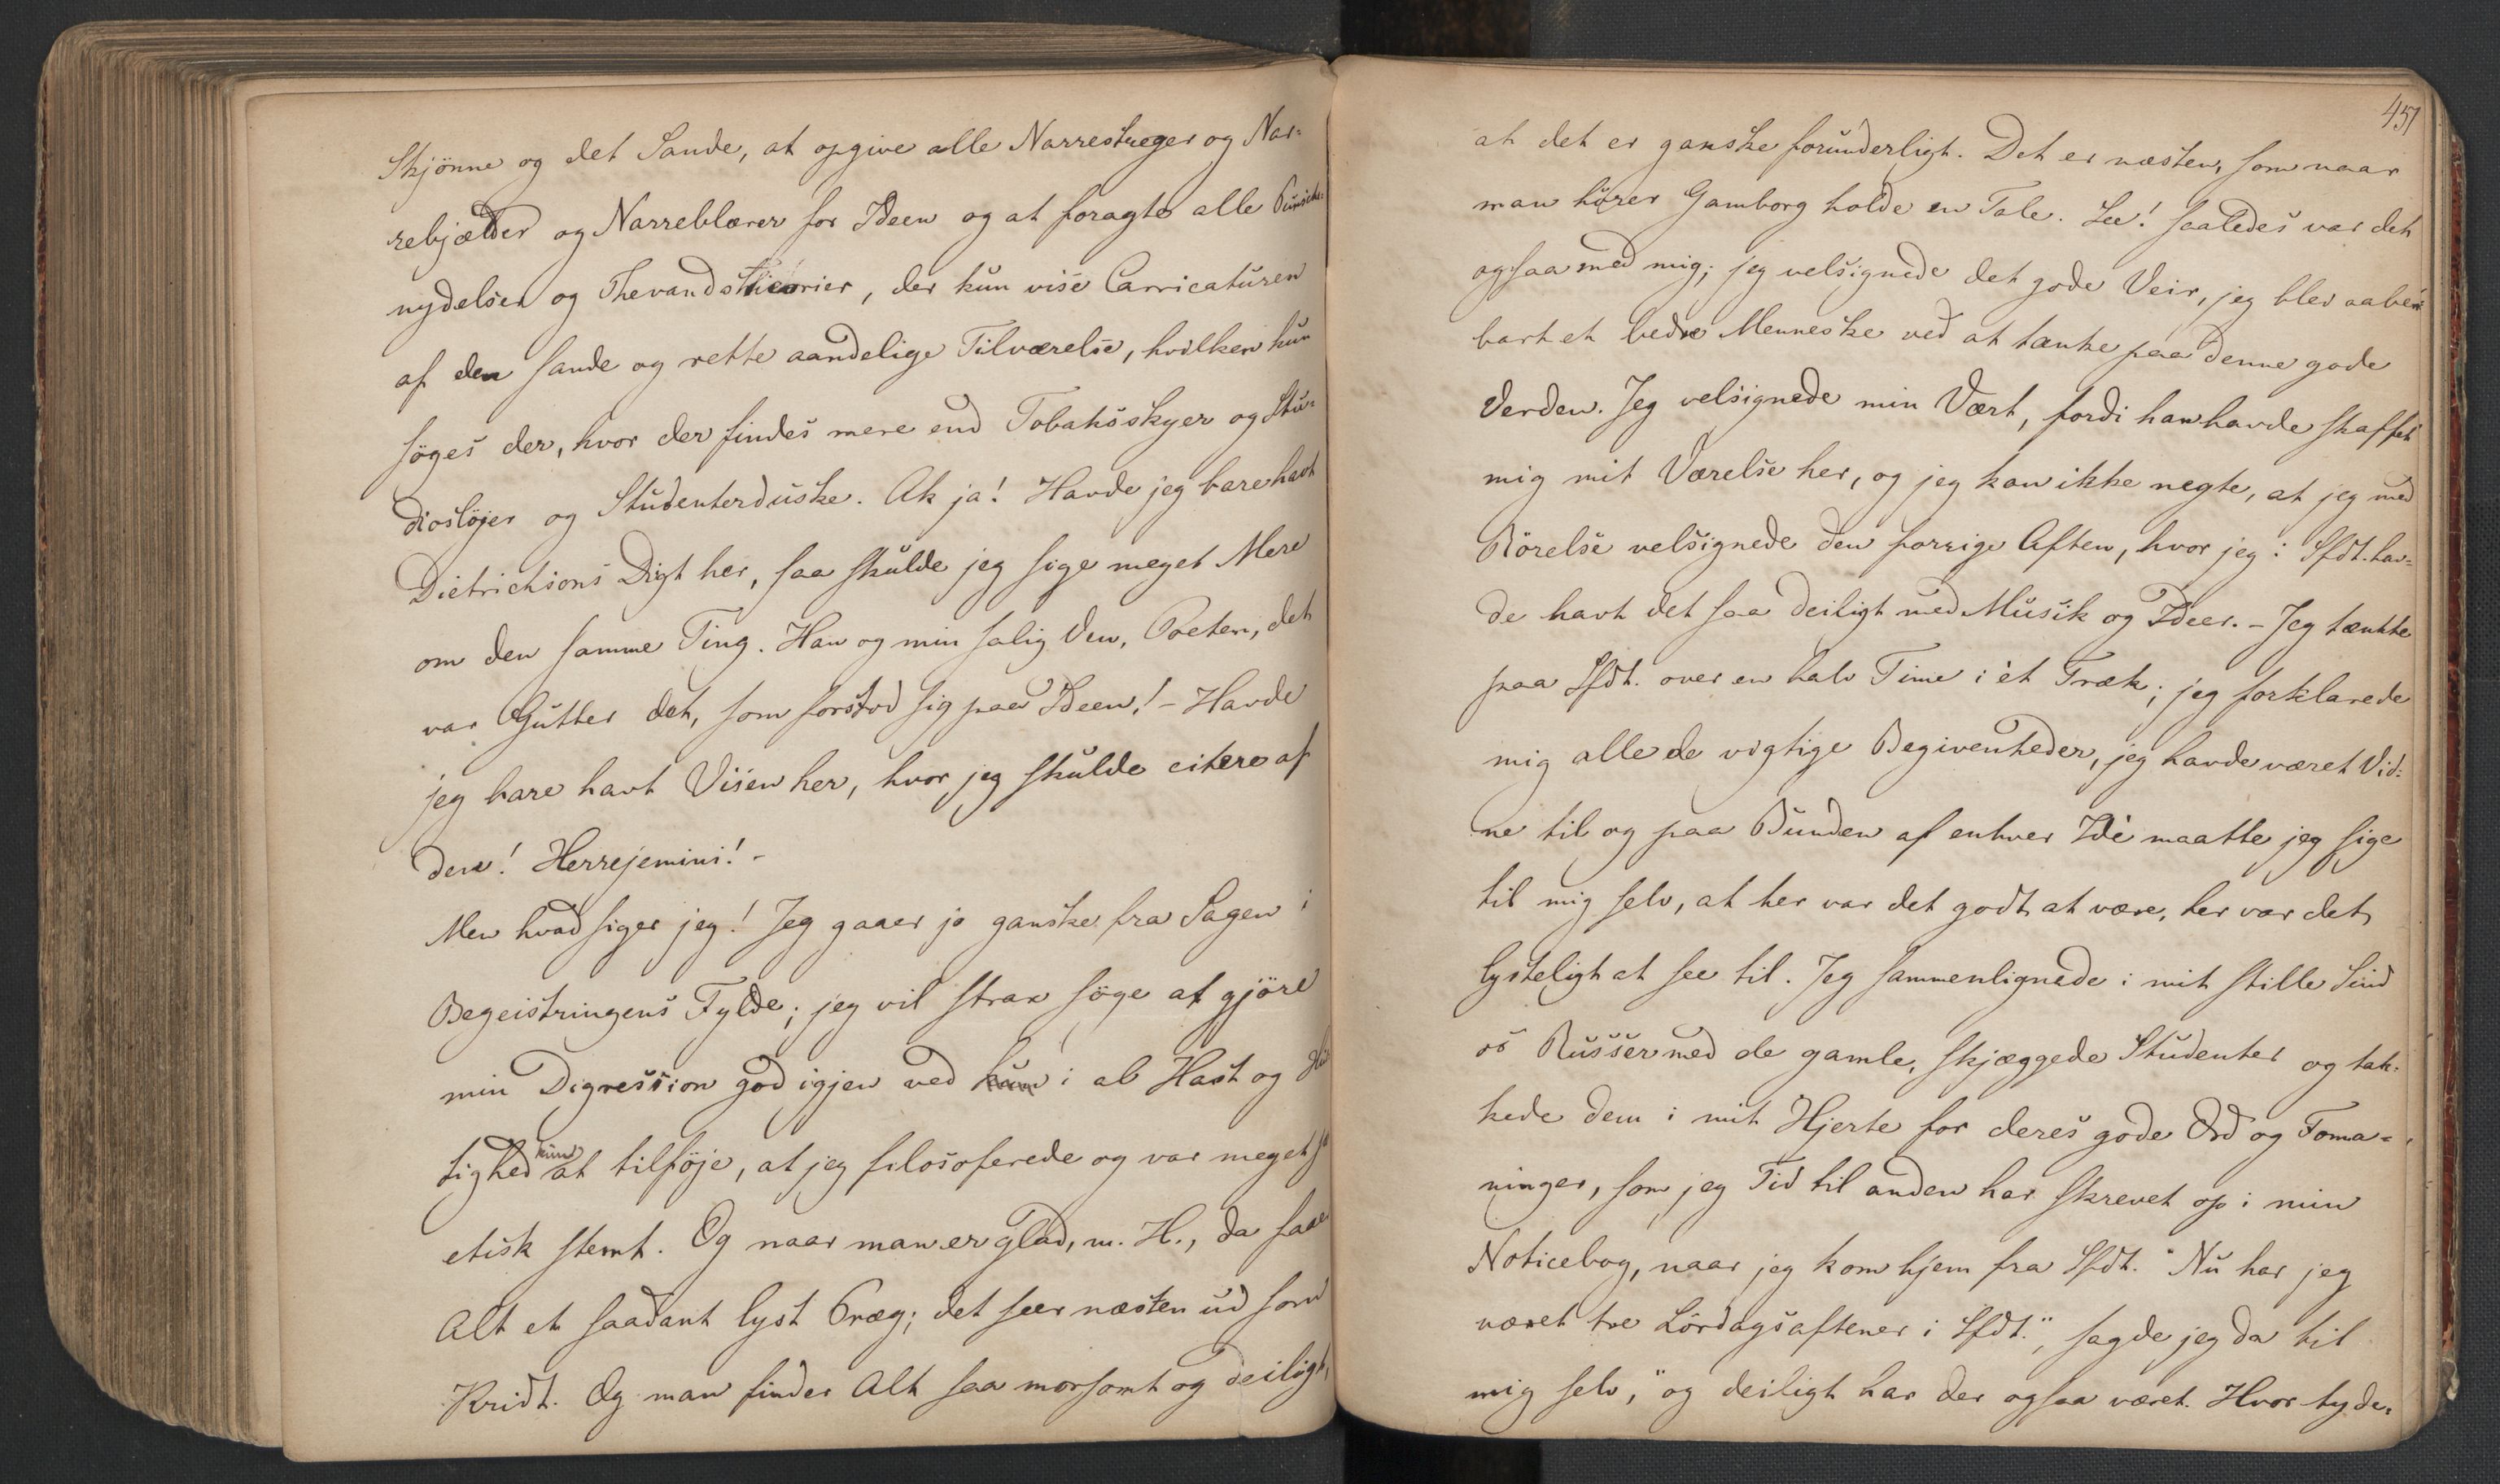 Skjönne og det Sande, at opgive alle Narrestreger og Nar-
rebjælder og Narreblærer for Ideen og at foragte alle Punsche-
nydelser og Thevandstheorier, der kun vise Carricaturen
af den sande og rette aandelige Tilværelse, hvilken kun
söges der, hvor der findes mere end Tobaksskyer og Stu-
diosløjer og Studenterduske. Ak ja! Havde jeg bare havt
Dietrichsons Digt her, saa skulde jeg sige meget Mere
om den samme Ting. Han og min salig Ven, Poeten, det
var Gutter det, som forstod sig paa Ideen! - Havde
jeg bare havt Visen her, hvor jeg skulde citere af
den! Herrejemini! -
Men hvad siger jeg! Jeg gaaer jo ganske fra Sagen i
Begeistringens Fylde; jeg vil strax söge at gjöre
min Digression god igjen ved kun i al Hast og Hur
tighed kun at tilföje, at jeg filosoferede og var meget po
etisk stemt. Og naar man er glad, m. H., da faaer
Alt et saadant lyst Præg; det seer næsten ud som
Kridt. Og man finder Alt saa morsomt og deiligt,
451
at det er ganske forunderligt. Det er næsten, som naar
man hörer Gamborg holde en Tale. See! saaledes var det
ogsaa med mig; jeg velsignede det gode Veir, jeg blev aaben-
bart et bedre Menneske ved at tænke paa denne gode
Verden. Jeg velsignede min Vært, fordi han havde skaffet
mig mit Værelse her, og jeg kan ikke negte, at jeg med
Rörelse velsignede den forrige Aften, hvor jeg i Sfdt. hav-
de havt det saa deiligt med Musik og Ideer. - Jeg tænkte
paa Sfdt. over en halv Time i ét Træk; jeg forklarede
mig alle de vigtige Begivenheder, jeg havde været Vid-
ne til og paa Bunden af enhver Idé maatte jeg sige
til mig selv, at her var det godt at være, her var det
lysteligt at see til. Jeg sammenlignede i mit stille Sind
os Russer med de gamle, skjæggede Studenter og tak-
kede dem i mit Hjerte for deres gode Ord og Forma-
ninger, som jeg Tid til anden har skrevet op i min
Noticebog, naar jeg kom hjem fra Sfdt. "Nu har jeg
været tre Lördagsaftener i Sfdt.", sagde jeg da til
mig selv, "og deiligt har der ogsaa været. Hvor tyde-